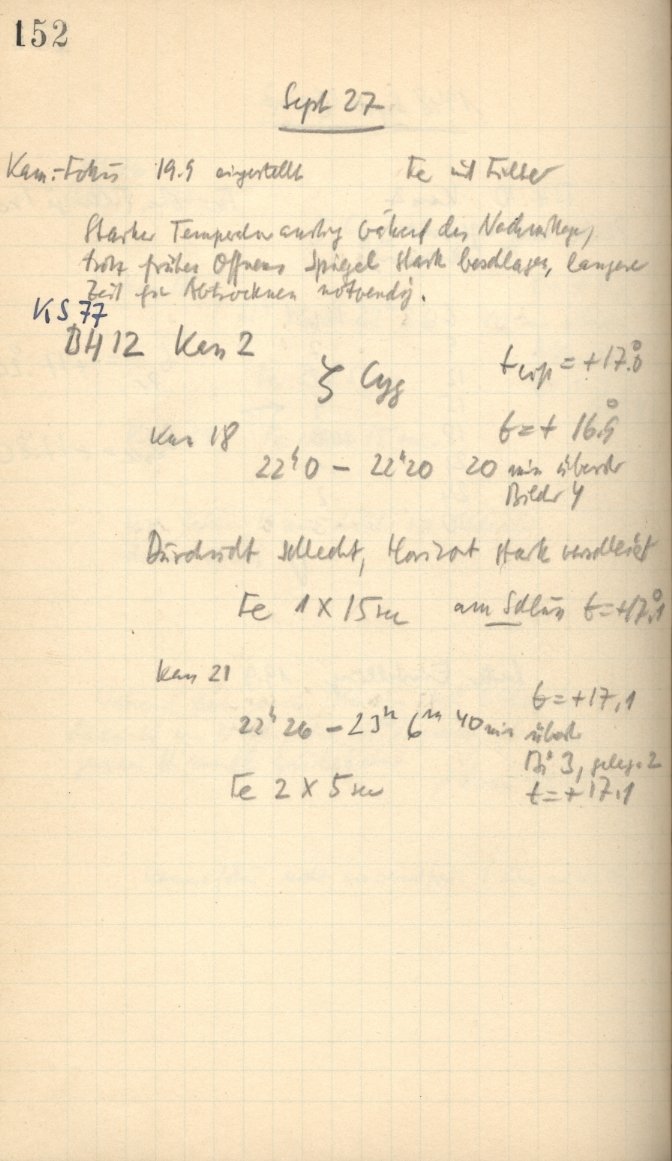 152
Sept 27
Kam.-Fokus 19.9 eingestellt Fe mit Filter
Starker Temperaturanstieg während des Nachmittags,
trotz frühen Öffnens Spiegel stark beschlagen, längere
Zeit für Abtrocknen notwendig.
KS 77
B412 Kas 2
ζ Cyg
t = +17.°0
Kas 18
t = + 16.°9
22ʰ0 – 22ʰ20 20 min
Bilder 4
Durchsicht schlecht, Horizont stark verschleiert
Fe 1 × 15 sec am Schluss t = +17.°1
Kas 21
t = +17,1
22ʰ 26 – 23ʰ 6ᵐ 40 min
Bi 3, geleg. 2
Fe 2 × 5 sec t = + 17.1